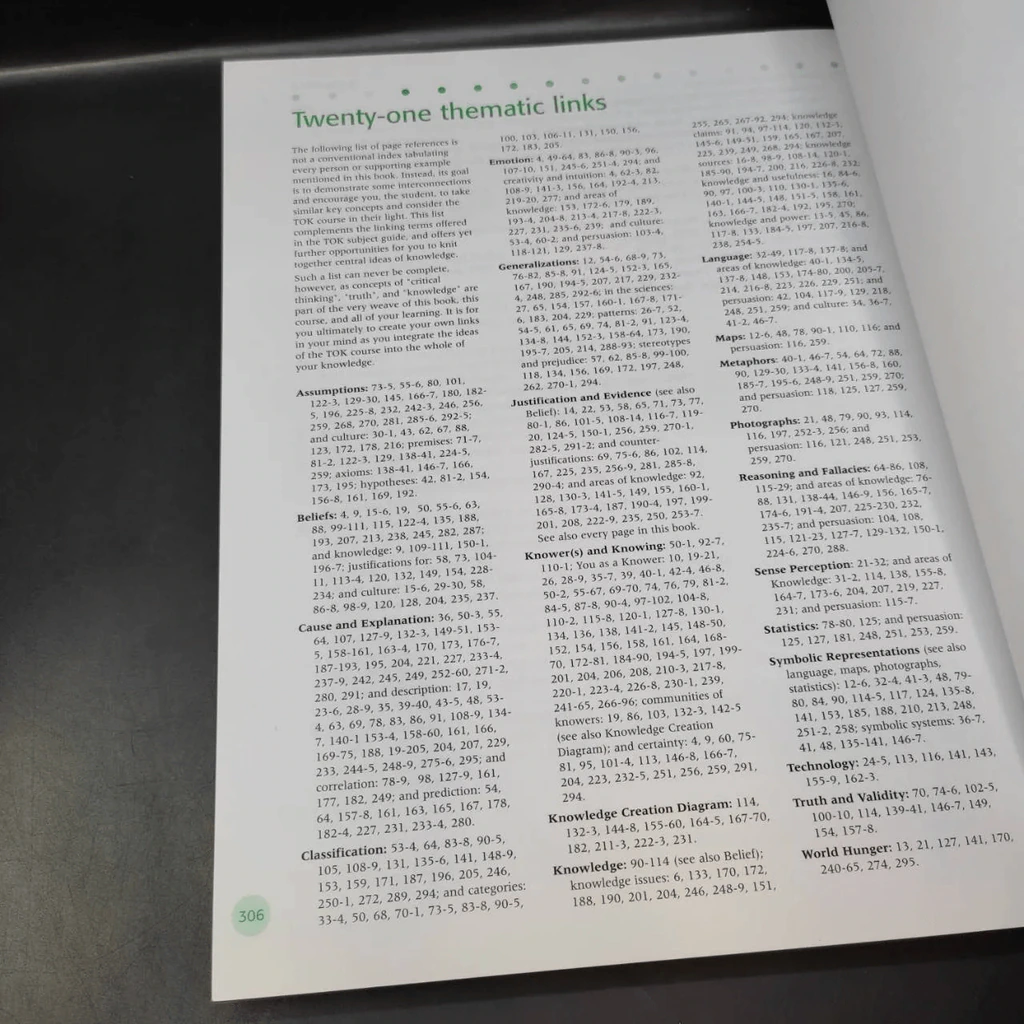 Twenty-one thematic links
The following list of page references is
not a conventional index tabulating
every person or supporting example
mentioned in this book. Instead, its goal
is to demonstrate some interconnections
and encourage you, the student, to take
similar key concepts and consider the
TOK course in their light. This list
complements the linking terms offered
in the TOK subject guide, and offers yet
further opportunities for you to knit
together central ideas of knowledge.
Such a list can never be complete,
however, as concepts of "critical
thinking", "truth", and "knowledge" are
part of the very weave of this book, this
course, and all of your learning. It is for
you ultimately to create your own links
in your mind as you integrate the ideas
of the TOK course into the whole of
your knowledge.
Assumptions: 73-5, 55-6, 80, 101,
122-3, 129-30, 145, 166-7, 180, 182-
5, 196, 225-8, 232, 242-3, 246, 256,
259, 268, 270, 281, 285-6, 292-5;
and culture: 30-1, 43, 62, 67, 88,
123, 172, 178, 216; premises: 71-7,
81-2, 122-3, 129, 138-41, 224-5,
259; axioms: 138-41, 146-7, 166,
173, 195; hypotheses: 42, 81-2, 154,
156-8, 161, 169, 192.
Beliefs: 4, 9, 15-6, 19, 50, 55-6, 63,
88, 99-111, 115, 122-4, 135, 188,
193, 207, 213, 238, 245, 282, 287;
and knowledge: 9, 109-111, 150-1,
196-7; justifications for: 58, 73, 104-
11, 113-4, 120, 132, 149, 154, 228-
234; and culture: 15-6, 29-30, 58,
86-8, 98-9, 120, 128, 204, 235, 237.
Cause and Explanation: 36, 50-3, 55,
64, 107, 127-9, 132-3, 149-51, 153-
5, 158-161, 163-4, 170, 173, 176-7,
187-193, 195, 204, 221, 227, 233-4,
237-9, 242, 245, 249, 252-60, 271-2,
280, 291; and description: 17, 19,
23-6, 28-9, 35, 39-40, 43-5, 48, 53-
4, 63, 69, 78, 83, 86, 91, 108-9, 134-
7, 140-1 153-4, 158-60, 161, 166,
169-75, 188, 19-205, 204, 207, 229,
233, 244-5, 248-9, 275-6, 295; and
correlation: 78-9, 98, 127-9, 161,
177, 182, 249; and prediction: 54,
64, 157-8, 161, 163, 165, 167, 178,
182-4, 227, 231, 233-4, 280.
Classification: 53-4, 64, 83-8, 90-5,
105, 108-9, 131, 135-6, 141, 148-9,
153, 159, 171, 187, 196, 205, 246,
250-1, 272, 289, 294; and categories:
33-4, 50, 68, 70-1, 73-5, 83-8, 90-5,
100, 103, 106-11, 131, 150, 156,
172, 183, 205.
Emotion: 4, 49-64, 83, 86-8, 90-3, 96,
107-10, 151, 245-6, 251-4, 294; and
creativity and intuition: 4, 62-3, 82,
108-9, 141-3, 156, 164, 192-4, 213,
219-20, 277; and areas of
knowledge: 153, 172-6, 179, 189,
193-4, 204-8, 213-4, 217-8, 222-3,
227, 231, 235-6, 239; and culture:
53-4, 60-2; and persuasion: 103-4,
118-121, 129, 237-8.
Generalizations: 12, 54-6, 68-9, 73,
76-82, 85-8, 91, 124-5, 152-3, 165,
167, 190, 194-5, 207, 217, 229, 232-
4, 248, 285, 292-6; in the sciences:
27, 65, 154, 157, 160-1, 167-8, 171-
6, 183, 204, 229; patterns: 26-7, 52,
54-5, 61, 65, 69, 74, 81-2, 91, 123-4,
134-8, 144, 152-3, 158-64, 173, 190,
195-7, 205, 214, 288-93; stereotypes
and prejudice: 57, 62, 85-8, 99-100,
118, 134, 156, 169, 172, 197, 248,
262, 270-1, 294.
Justification and Evidence (see also
Belief): 14, 22, 53, 58, 65, 71, 73, 77,
80-1, 86, 101-5, 108-14, 116-7, 119-
20, 124-5, 150-1, 256, 259, 270-1,
282-5, 291-2; and counter-
justifications: 69, 75-6, 86, 102, 114,
167, 225, 235, 256-9, 281, 285-8,
290-4; and areas of knowledge: 92,
128, 130-3, 141-5, 149, 155, 160-1,
165-8, 173-4, 187, 190-4, 197, 199-
201, 208, 222-9, 235, 250, 253-7.
See also every page in this book.
Knower(s) and Knowing: 50-1, 92-7,
110-1; You as a Knower: 10, 19-21,
26, 28-9, 35-7, 39, 40-1, 42-4, 46-8,
50-2, 55-67, 69-70, 74, 76, 79, 81-2,
84-5, 87-8, 90-4, 97-102, 104-8,
110-2, 115-8, 120-1, 127-8, 130-1,
134, 136, 138, 141-2, 145, 148-50,
152, 154, 156, 158, 161, 164, 168-
70, 172-81, 184-90, 194-5, 197, 199-
201, 204, 206, 208, 210-3, 217-8,
220-1, 223-4, 226-8, 230-1, 239,
241-65, 266-96; communities of
knowers: 19, 86, 103, 132-3, 142-5
(see also Knowledge Creation
Diagram); and certainty: 4, 9, 60, 75-
81, 95, 101-4, 113, 146-8, 166-7,
204, 223, 232-5, 251, 256, 259, 291,
294.
Knowledge Creation Diagram: 114,
132-3, 144-8, 155-60, 164-5, 167-70,
182, 211-3, 222-3, 231.
Knowledge: 90-114 (see also Belief);
knowledge issues: 6, 133, 170, 172,
188, 190, 201, 204, 246, 248-9, 151,
255, 265, 267-92, 294; knowledge
claims: 91, 94, 97-114, 120, 132-3,
145-6, 149-51, 159, 165, 167, 207,
225, 239, 249, 268, 294; knowledge
sources: 16-8, 98-9, 108-14, 120-1,
185-90, 194-7, 200, 216, 226-8, 232;
knowledge and usefulness: 16, 84-6,
90, 97, 100-3, 110, 130-1, 135-6,
140-1, 144-5, 148, 151-5, 158, 161,
163, 166-7, 182-4, 192, 195, 270;
knowledge and power: 13-5, 45, 86,
117-8, 133, 184-5, 197, 207, 216-8,
238, 254-5.
Language: 32-49, 117-8, 137-8; and
areas of knowledge: 40-1, 134-5,
137-8, 148, 153, 174-80, 200, 205-7,
214, 216-8, 223, 226, 229, 251; and
persuasion: 42, 104, 117-9, 129, 218,
248, 251, 259; and culture: 34, 36-7,
41-2, 46-7.
Maps: 12-6, 48, 78, 90-1, 110, 116; and
persuasion: 116, 259.
Metaphors: 40-1, 46-7, 54, 64, 72, 88,
90, 129-30, 133-4, 141, 156-8, 160,
185-7, 195-6, 248-9, 251, 259, 270;
and persuasion: 118, 125, 127, 259,
270.
Photographs: 21, 48, 79, 90, 93, 114,
116, 197, 252-3, 256; and
persuasion: 116, 121, 248, 251, 253,
259, 270.
Reasoning and Fallacies: 64-86, 108,
115-29; and areas of knowledge: 76-
88, 131, 138-44, 146-9, 156, 165-7,
174-6, 191-4, 207, 225-230, 232,
235-7; and persuasion: 104, 108,
115, 121-3, 127-7, 129-132, 150-1,
224-6, 270, 288.
Sense Perception: 21-32; and areas of
Knowledge: 31-2, 114, 138, 155-8,
164-7, 173-6, 204, 207, 219, 227,
231; and persuasion: 115-7.
Statistics: 78-80, 125; and persuasion:
125, 127, 181, 248, 251, 253, 259.
Symbolic Representations (see also
language, maps, photographs,
statistics): 12-6, 32-4, 41-3, 48, 79-
80, 84, 90, 114-5, 117, 124, 135-8,
141, 153, 185, 188, 210, 213, 248,
251-2, 258; symbolic systems: 36-7,
41, 48, 135-141, 146-7.
Technology: 24-5, 113, 116, 141, 143,
155-9, 162-3.
Truth and Validity: 70, 74-6, 102-5,
100-10, 114, 139-41, 146-7, 149,
154, 157-8.
World Hunger: 13, 21, 127, 141, 170,
240-65, 274, 295.
306